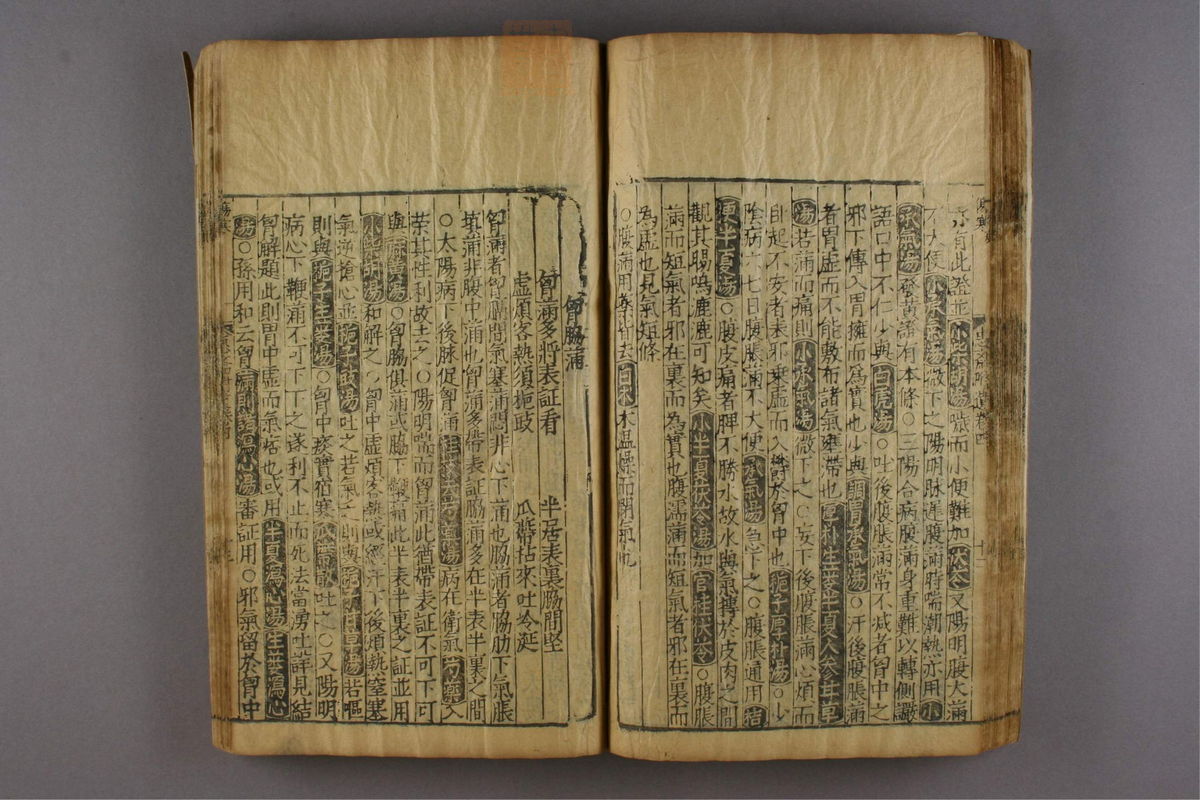 有此證並小柴胡湯嗽而小便難加伏苓又陽明腹大滿
不大便小承氣湯微下之陽明脉遲腹滿時喘潮熱亦用小
承氣湯發黃譫有本條○三陽合病腹滿身重難以轉側譫
語口中不仁少與白虎湯○吐後腹脹滿常不減者胷中之
邪下傳入胃擁而爲實也少與調胃承氣湯○汗後腹脹滿
者胃虛而不能敷布諸氣壅滯也厚朴生姜半夏人參甘草
湯若滿而痛則小承氣湯微下之○妄下後腹脹滿心煩而
卧起不安者表邪乘虛而入欝於胷中也梔子厚朴湯○少
陰病六七日腹脹滿不大便承氣湯急下之○腹脹通用桔
梗半夏湯○腹皮痛者脾不勝水故水與氣搏於皮肉之間
觀其腸鳴漉漉可知矣小半夏茯苓湯加官桂伏苓○腹脹
滿而短氣者邪在裏而爲實也腹濡滿而短氣者邪在裏而
為虛也見氣短條
○腹滿用桑竹去白朮朮温燥而閉氣也
胷脇滿
胷滿多將表証看 半居表裏脇間堅
虛煩客熱須梔豉 瓜蔕拈來吐冷涎
胷滿者胷膈間氣塞滿悶非心下滿也脇滿者脇肋下氣脹
填滿非腹中滿也胷滿多帶表証脇滿多在半表半裏之間
○太陽病下後脉促胷滿桂姜去芍藥湯病在衛氣芍藥入
荣其性利故去之○陽明喘而胷滿此猶帶表証不可下可
與麻黃湯○胷脇俱滿或脇下鞕痛此半表半裏之証並用
小柴胡湯和解之○胷中虛煩客熱或經汗下後煩熱窒塞
氣逆搶心並梔子豉湯吐之若氣乏則與梔子甘草湯若嘔
則與梔子生姜湯○胷中痰實宿寒瓜蔕散吐之○又陽明
病心下鞕滿不可下下之遂利不止而死法當湧吐詳見結
胷解題此則胃中虛而氣痞也或用半夏瀉心湯生姜瀉心
湯○孫用和云胷審証用○邪氣留於胷中